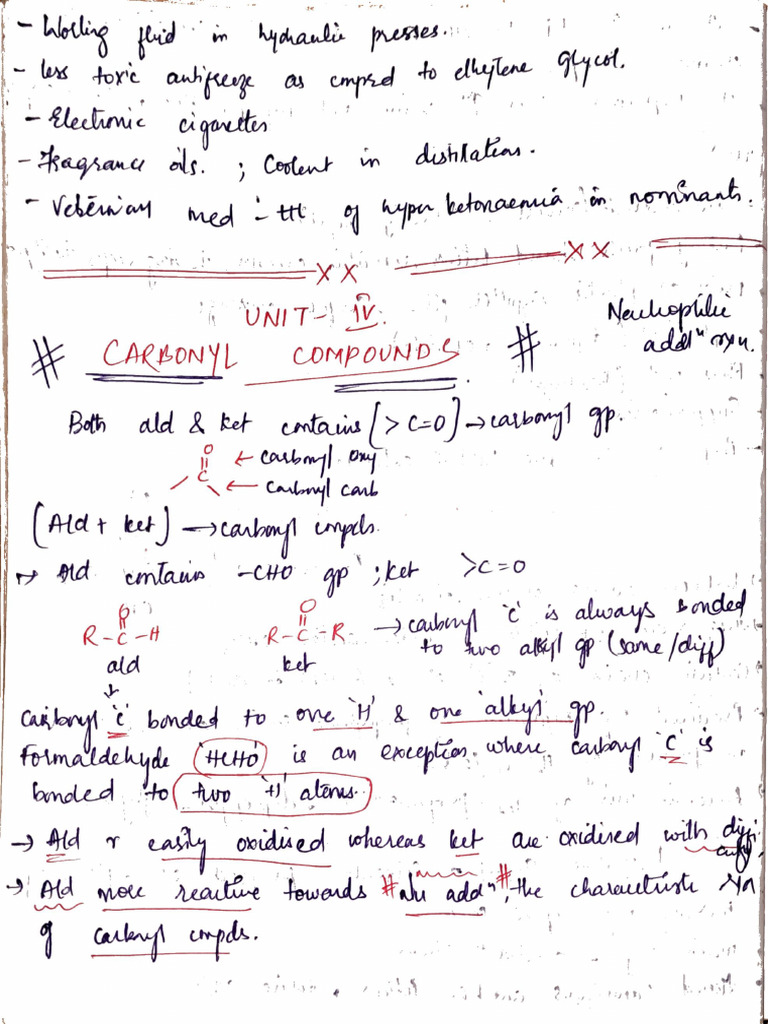 - Working fluid in hydraulic presses.
- less toxic antifreeze as cmprd to ethylene glycol.
- Electronic cigarettes
- Fragrance oils. ; Coolent in distillation.
- Veterinary med :- ttt of hyper ketonaemia in rominants.
XX XX
UNIT - IV
# CARBONYL COMPOUNDS #
Neucleophilic
addⁿ rxn.
Both ald & ket contains [>C=O] → carbonyl gp.
O ← carbonyl oxy
C ← carbonyl carb
[Ald + ket] → carbonyl cmpds.
→ Ald contains -CHO gp ; ket >C=O
O O → carbonyl 'C' is always bonded
R-C-H R-C-R to two alkyl gp (same/diff)
ald ket
Carbonyl 'C' bonded to one 'H' & one 'alkyl' gp.
Formaldehyde 'HCHO' is an exception where carbonyl 'C' is
bonded to two 'H' atoms.
→ Ald r easily oxidised whereas ket are oxidised with difficulty.
→ Ald more reactive towards # nu addⁿ #, the characteristic rxn
of carbonyl cmpds.